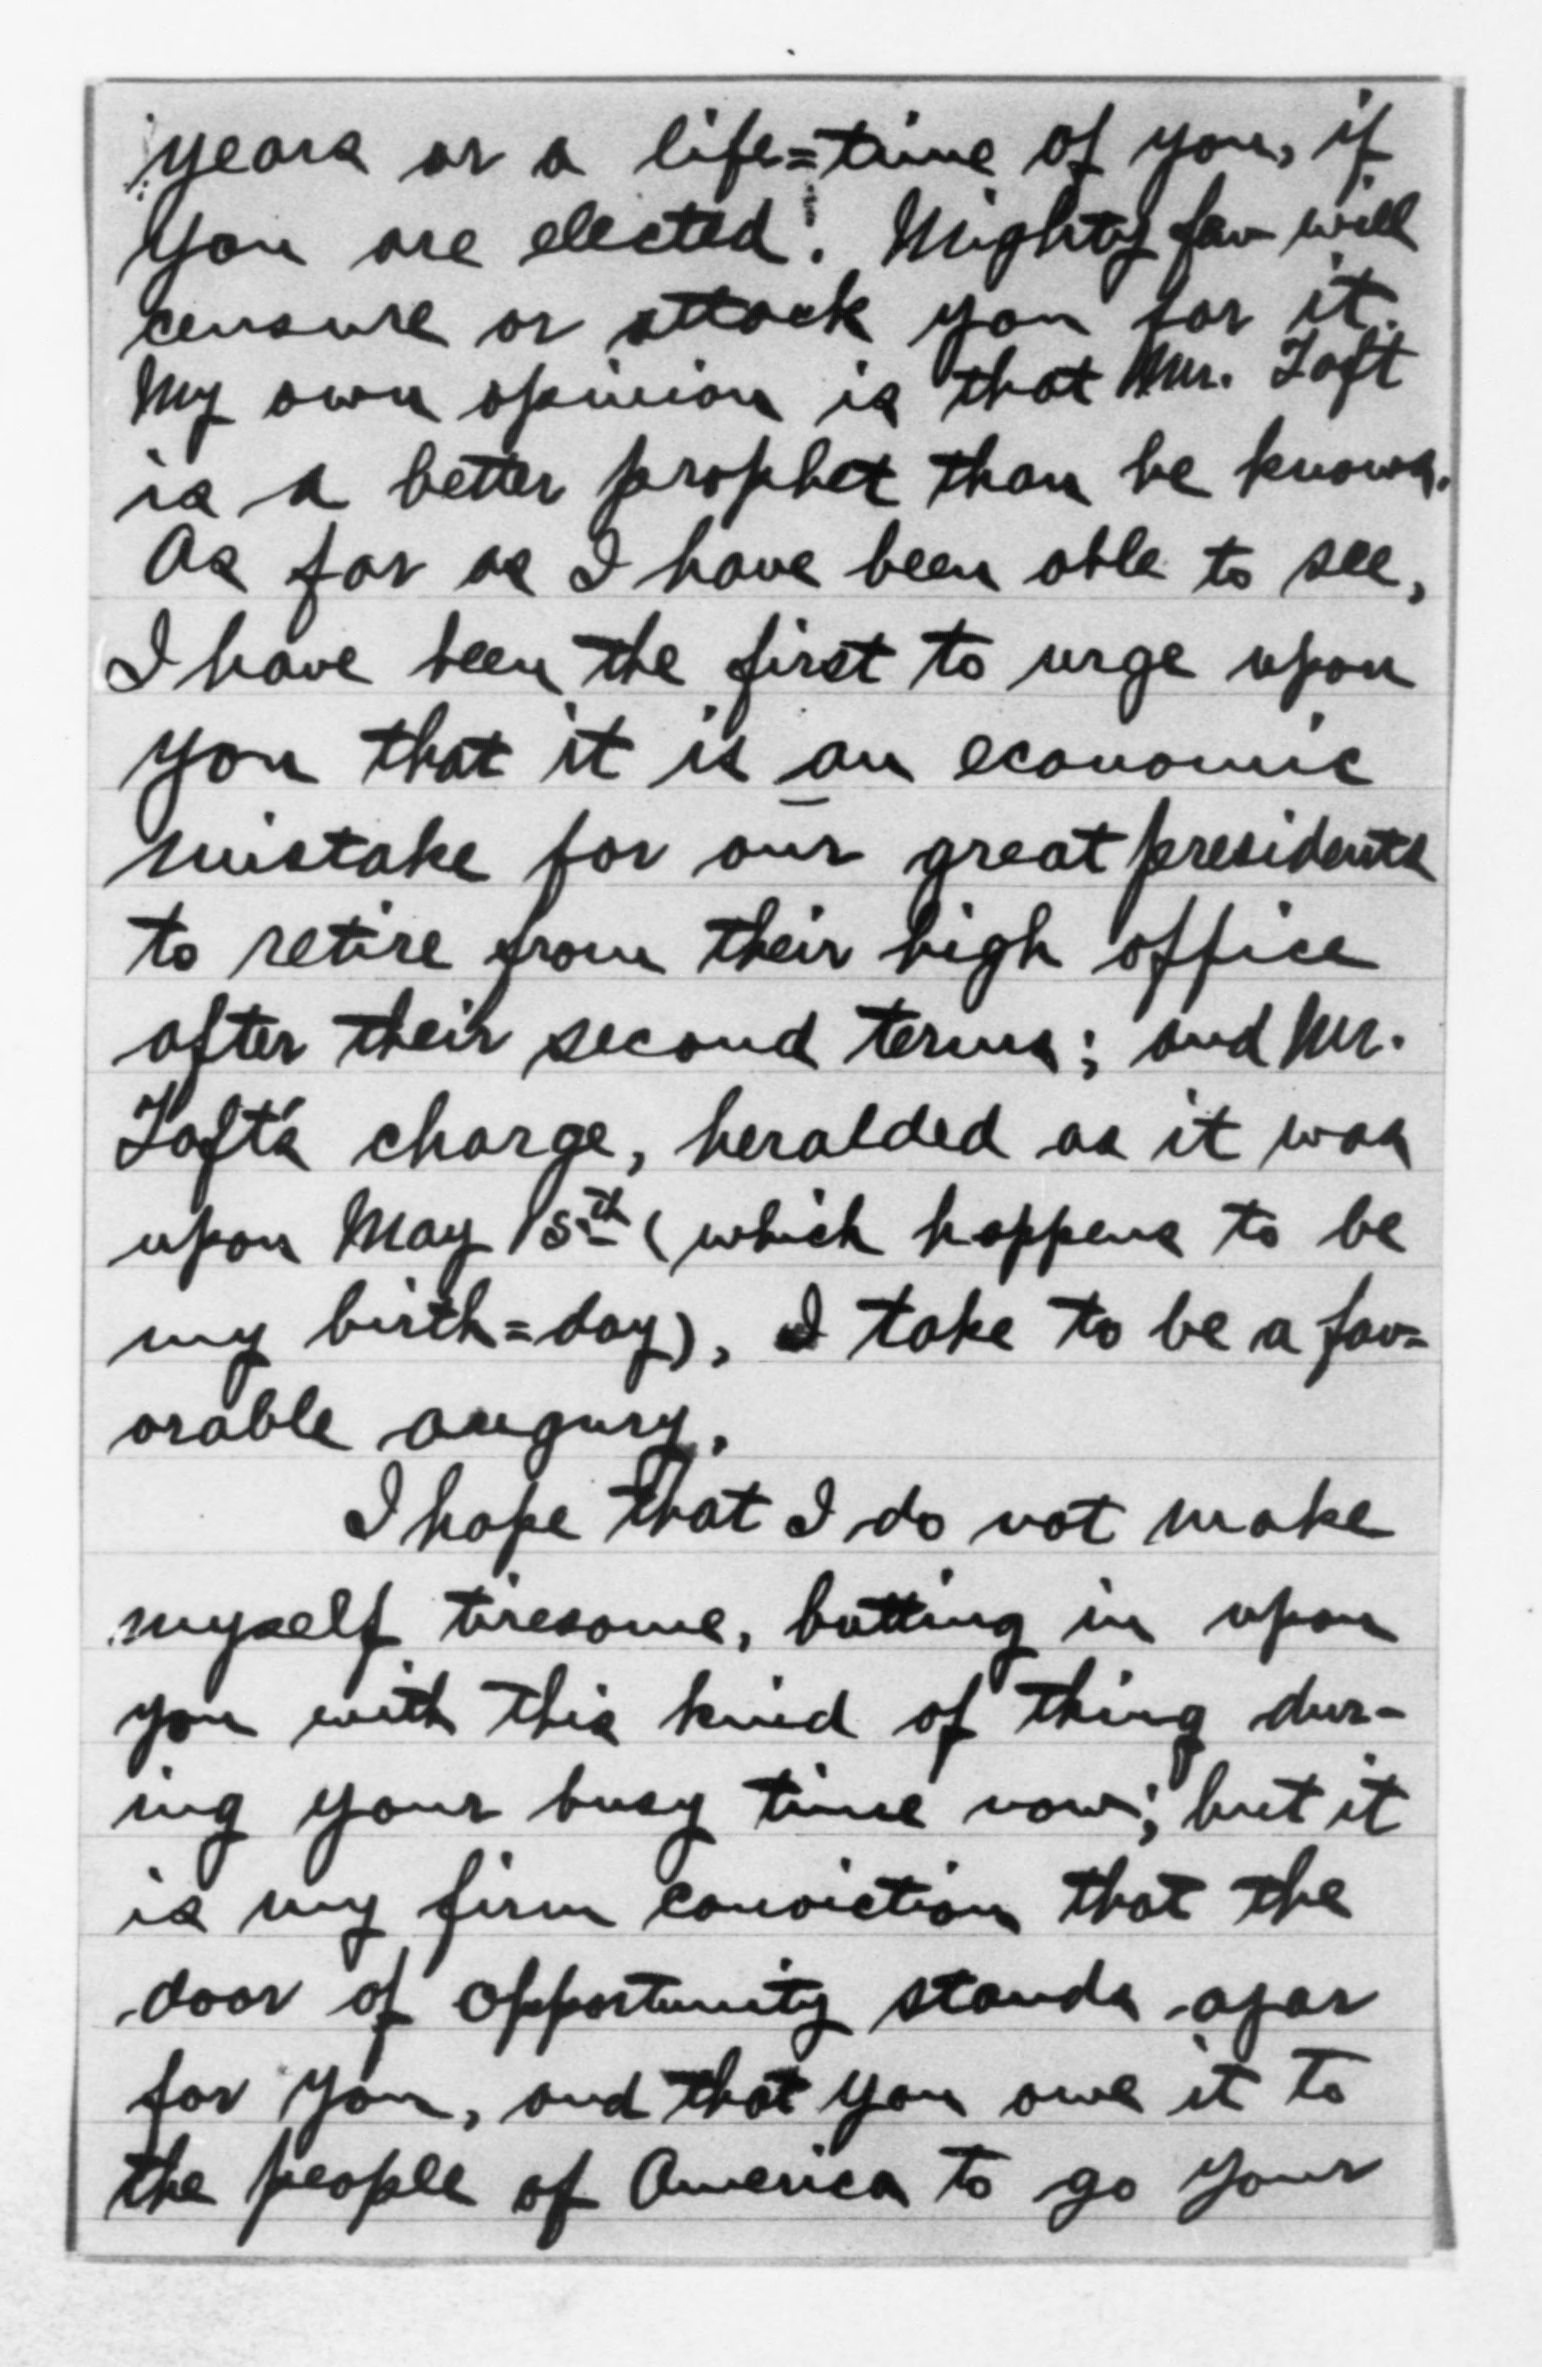 years or a life=time of you, if
you are elected. Mighty few will
censure or attack you for it.
My own opinion is that Mr. Taft
is a better prophet than he knows.
As far as I have been able to see,
I have been the first to urge upon
you that it is an economic
mistake for our great presidents
to retire from their high office
after their second terms; and Mr.
Taft's charge, heralded as it was
upon May 15th (which happens to be
my birth=day), I take to be a fav=
orable augury.
I hope that I do not make
myself tiresome, butting in upon
you with this kind of thing dur-
ing your busy time now; but it
is my firm conviction that the
door of opportunity stands ajar
for you, and that you owe it to
the people of America to go your